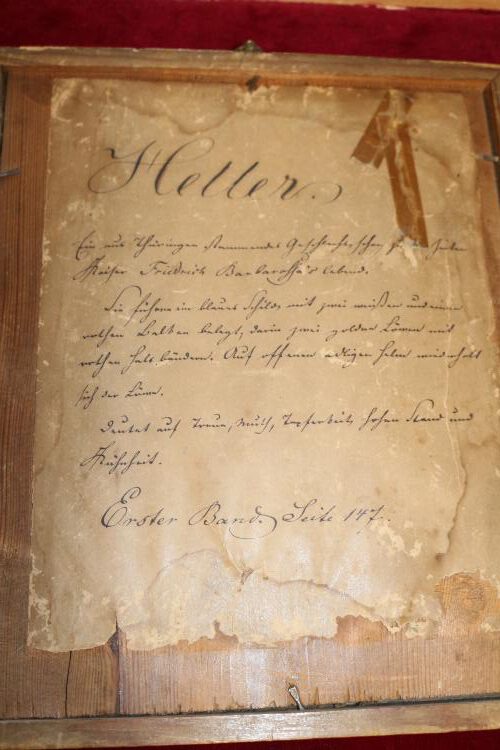 Heller.
Ein aus Thüringen stammendes Geschlecht, schon zu Zeiten
Kaiser Friedrich Barbarossa's lebend.
Sie führen im blauen Schilde mit zwei weißen und einem
rothen Balken belegt, darin zwei goldne Löwen mit
rothen Halsbändern. Auf offenem adligen Helm wiederholt
sich der Löwe.
Deutet auf Treue, Muth, Tapferkeit, hohen Stand und
Kühnheit.
Erster Band, Seite 147.